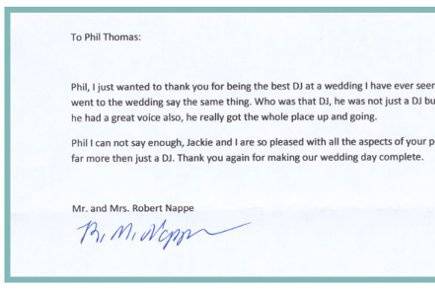 To Phil Thomas:
Phil, I just wanted to thank you for being the best DJ at a wedding I have ever seen
went to the wedding say the same thing. Who was that DJ, he was not just a DJ bu
he had a great voice also, he really got the whole place up and going.
Phil I can not say enough, Jackie and I are so pleased with all the aspects of your p
far more then just a DJ. Thank you again for making our wedding day complete.
Mr. and Mrs. Robert Nappe
R. M. Nappe